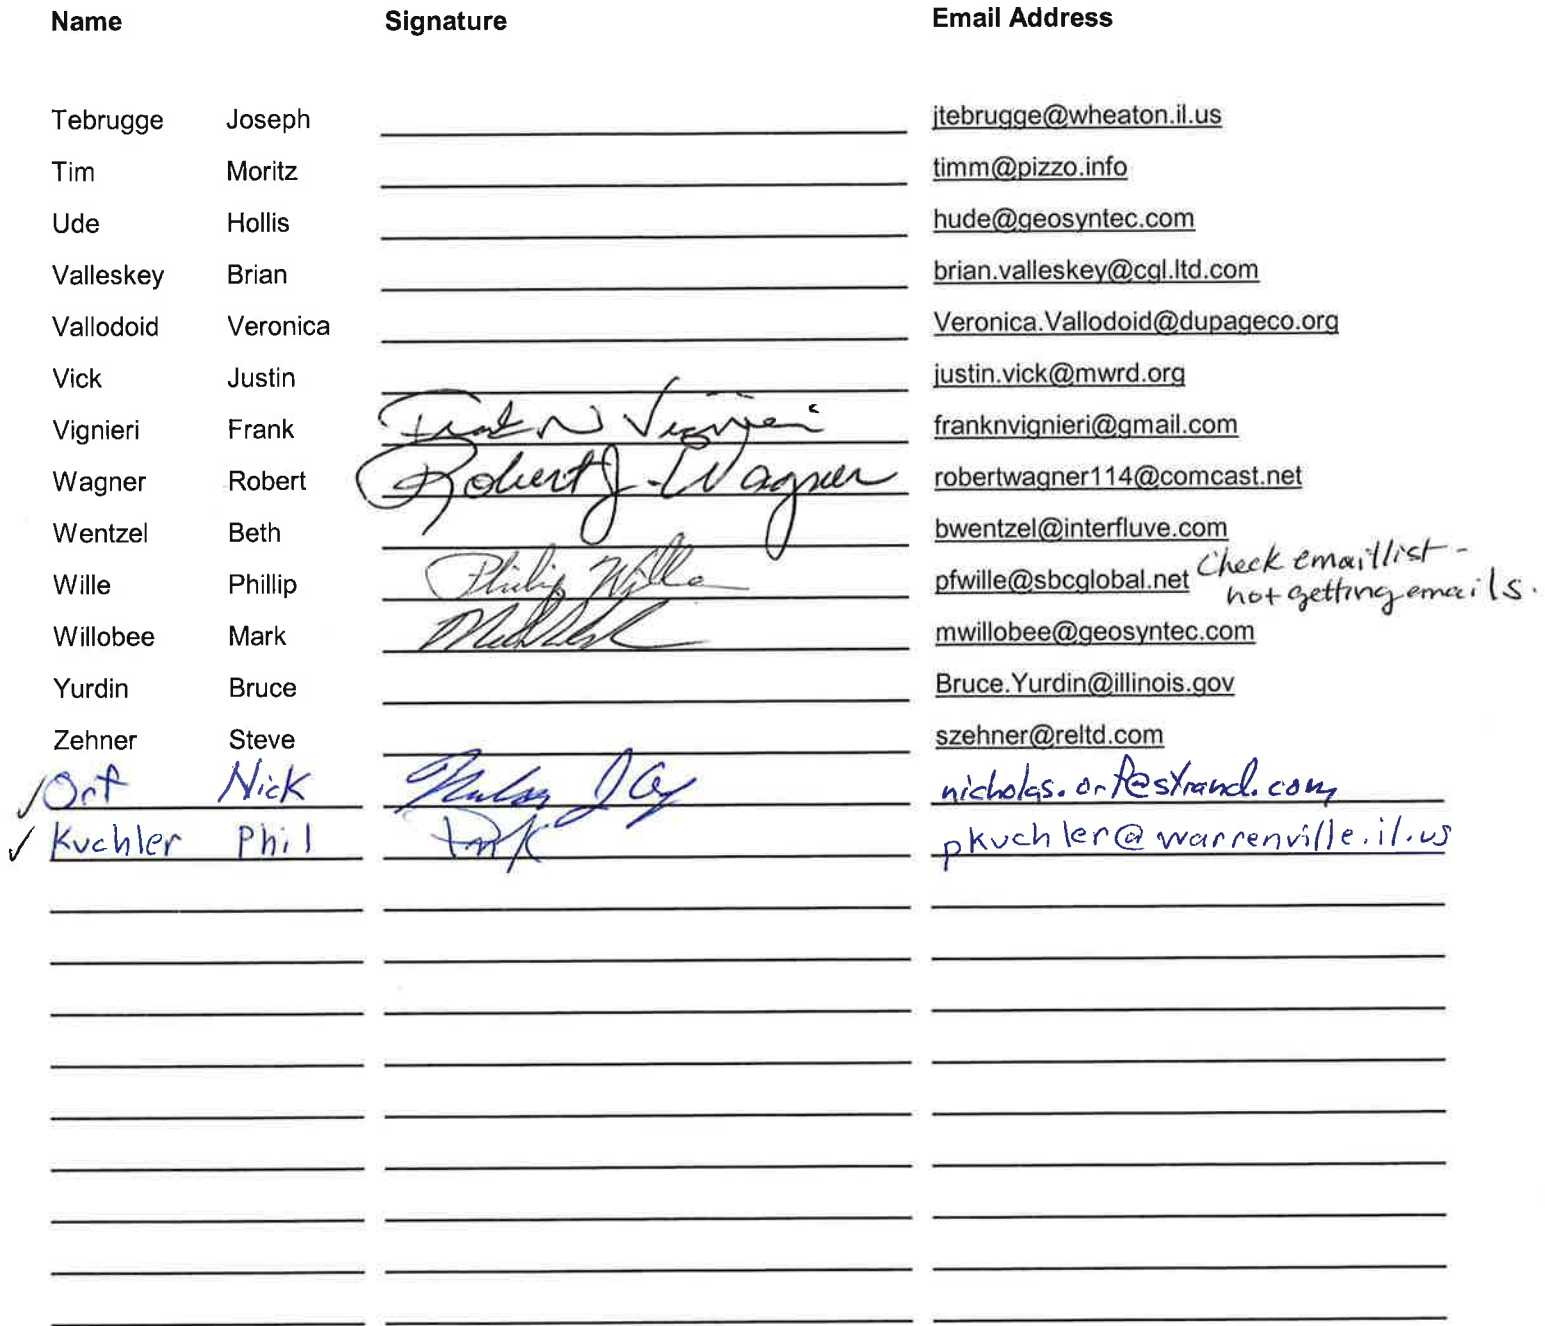 Name Signature Email Address
Tebrugge Joseph jtebrugge@wheaton.il.us
Tim Moritz timm@pizzo.info
Ude Hollis hude@geosyntec.com
Valleskey Brian brian.valleskey@cgl.ltd.com
Vallodoid Veronica Veronica.Vallodoid@dupageco.org
Vick Justin justin.vick@mwrd.org
Vignieri Frank Frank N Vignieri franknvignieri@gmail.com
Wagner Robert Robert J. Wagner robertwagner114@comcast.net
Wentzel Beth bwentzel@interfluve.com
Wille Phillip Philip Wille pfwille@sbcglobal.net Check email list -
not getting emails.
Willobee Mark mwillobee@geosyntec.com
Yurdin Bruce Bruce.Yurdin@illinois.gov
Zehner Steve szehner@reltd.com
✓ Ort Nick nicholas.ort@strand.com
✓ Kuchler Phil pkuchler@warrenville.il.us